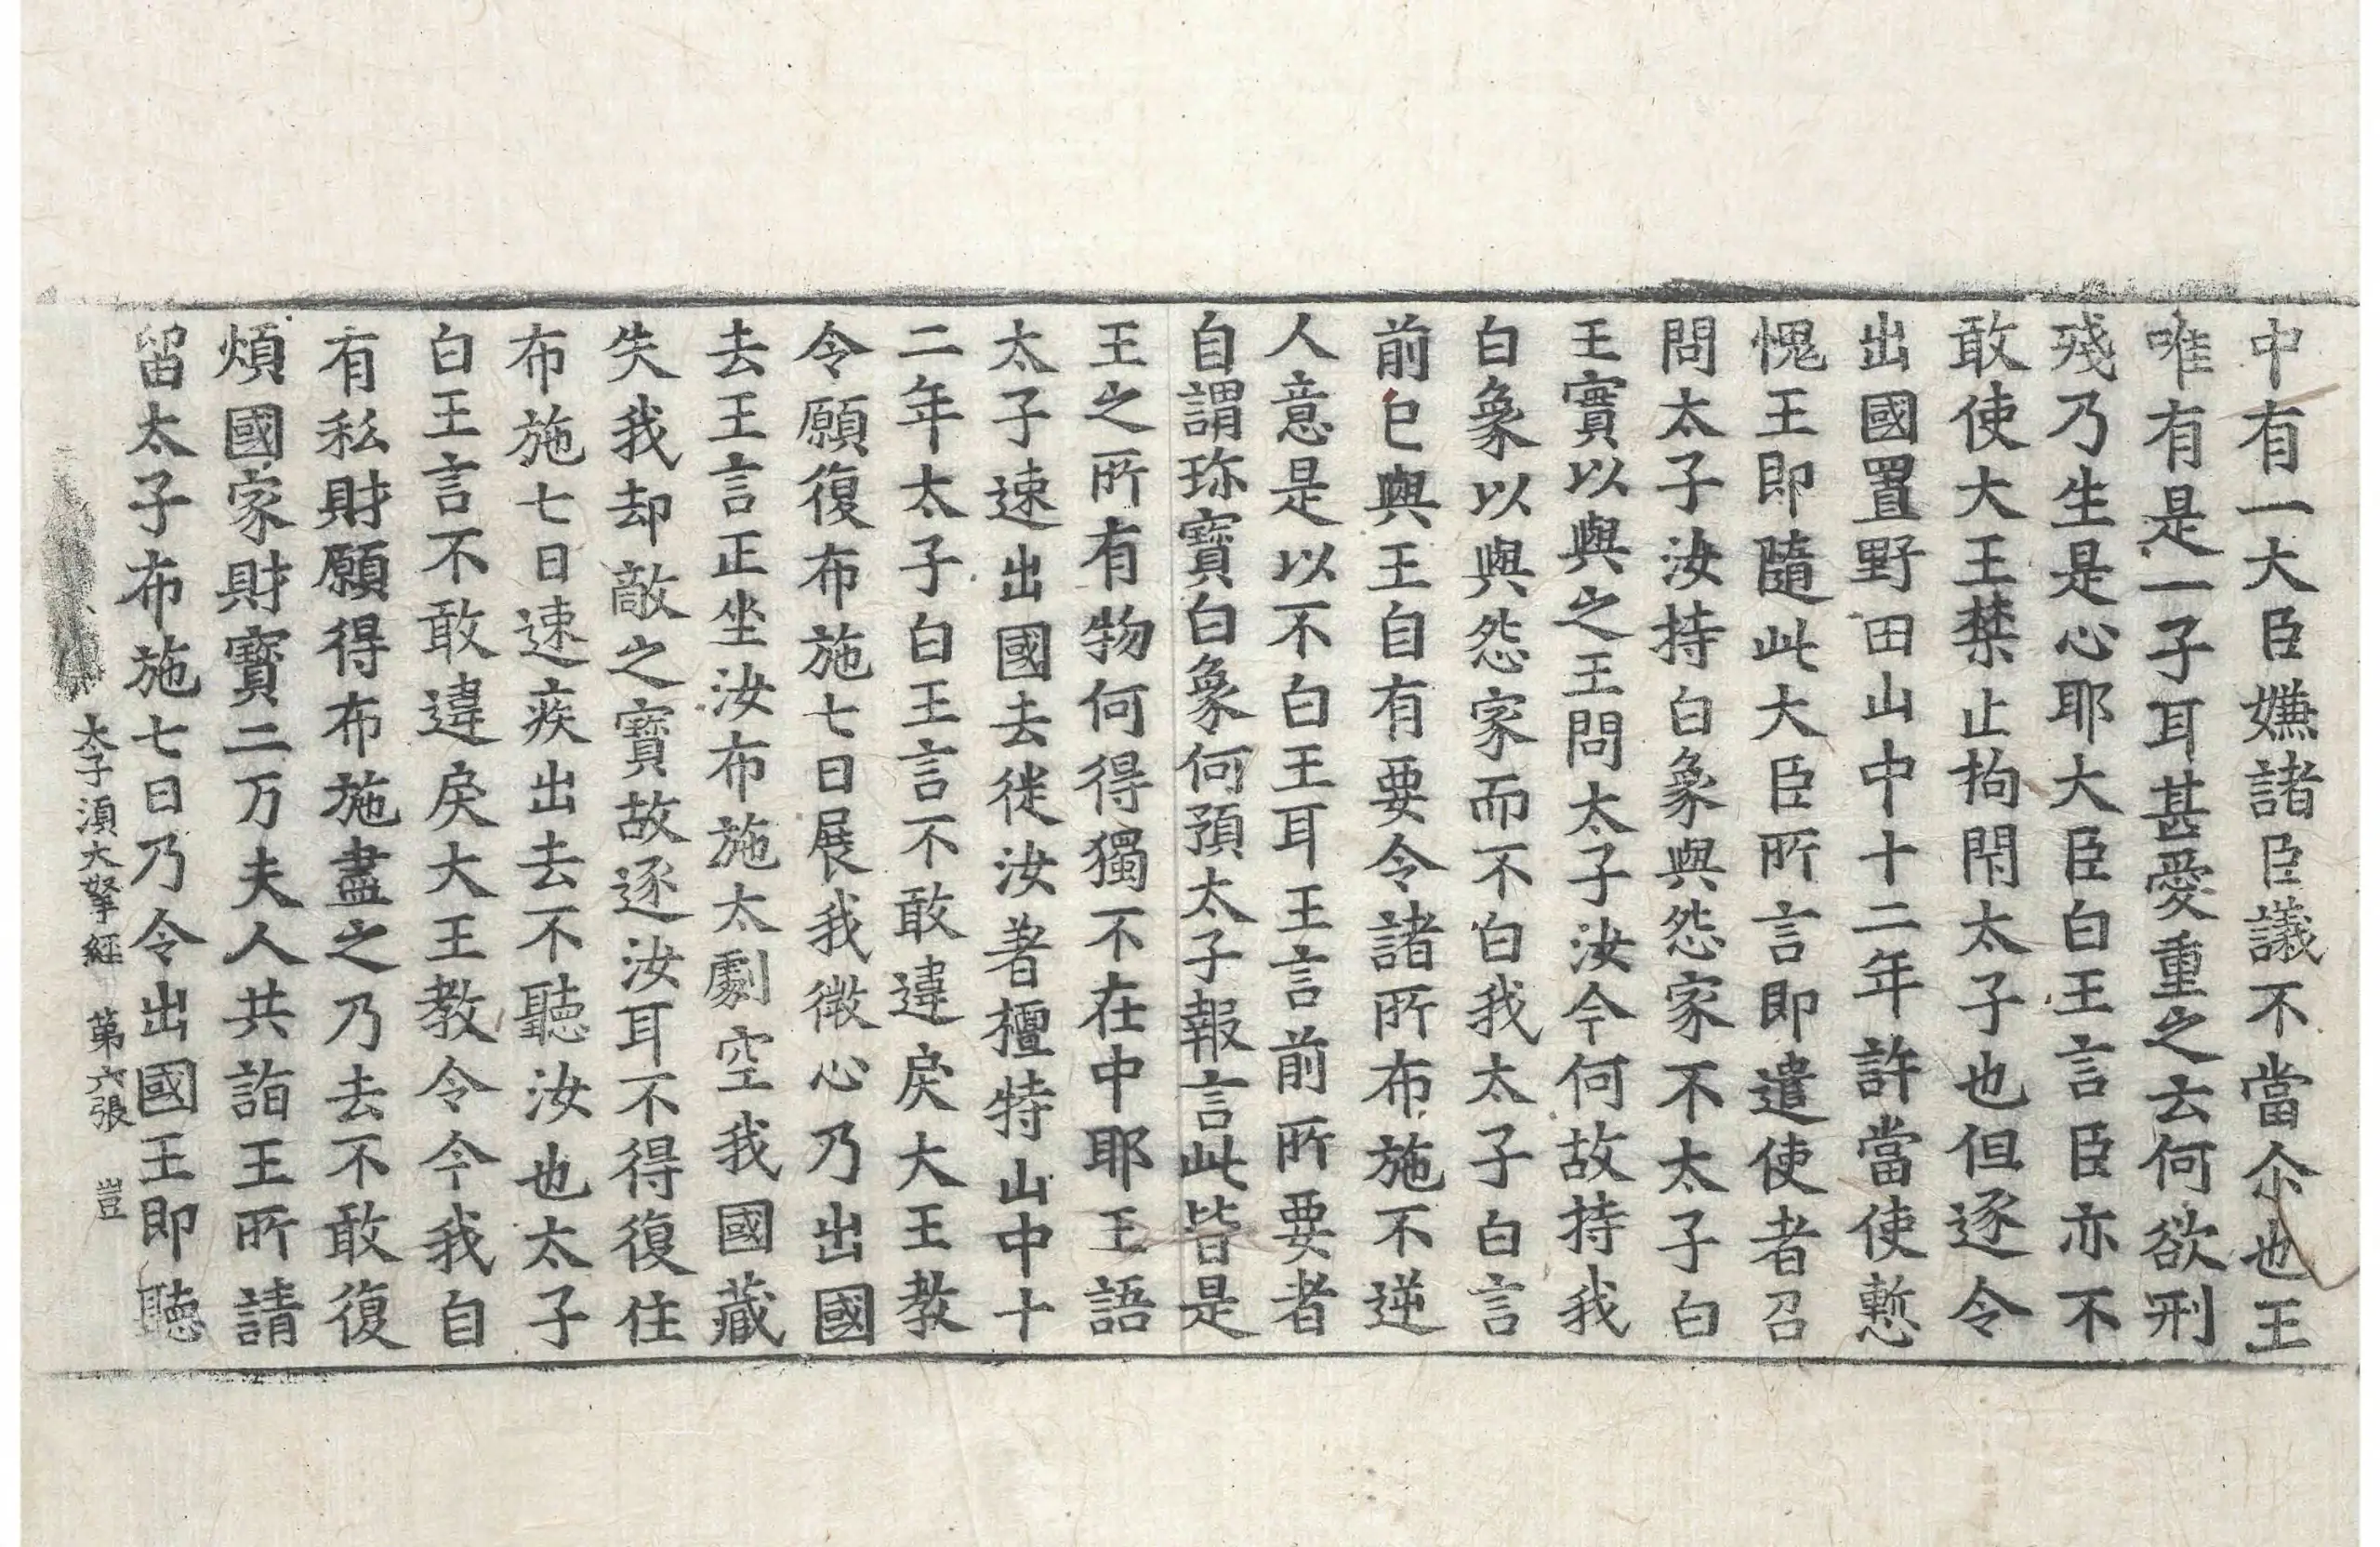 中有一大臣嫌諸臣議不當尒也王
唯有是一子耳甚愛重之云何欲刑
殘乃生是心耶大臣白王言臣亦不
敢使大王禁止拘閇太子也但逐令
出國置野田山中十二年許當使慙
愧王即隨此大臣所言即遣使者召
問太子汝持白象與怨家不太子白
王實以與之王問太子汝今何故持我
白象以與怨家而不白我太子白言
前已與王自有要令諸所布施不逆
人意是以不白王耳王言前所要者
自謂珎寶白象何預太子報言此皆是
王之所有物何得獨不在中耶王語
太子速出國去徙汝著檀特山中十
二年太子白王言不敢違戾大王教
令願復布施七日展我微心乃出國
去王言正坐汝布施太劇空我國藏
失我却敵之寶故逐汝耳不得復住
布施七日速疾出去不聽汝也太子
白王言不敢違戾大王教令今我自
有私財願得布施盡之乃去不敢復
煩國家財寶二万夫人共詣王所請
留太子布施七日乃令出國王即聽
太子湏大拏經 第六張 豈